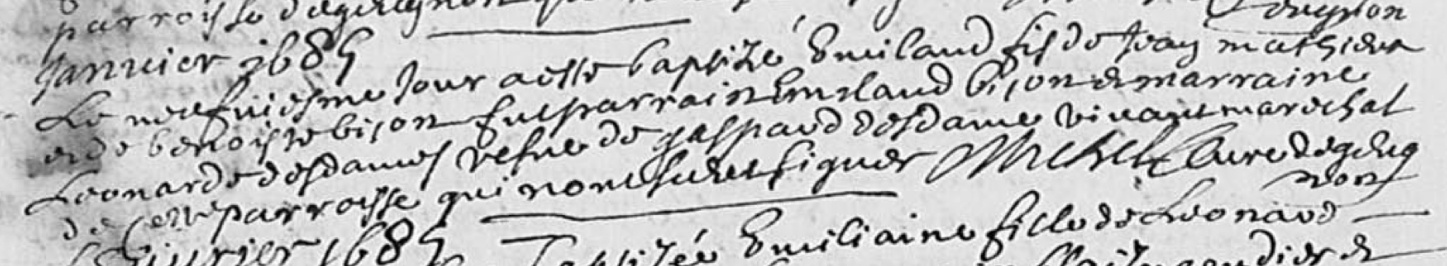 parroisse
Janvier 1685
Le neufviesme Jour a este baptizé Emiland fils de Jean mathieu
et de benoiste bijon fut parrain Emiland bijon et marraine
Leonarde desdames vefve de gaspard desdames vivant marechal
de cette parroisse qui n'ont sceu signer Michel Curé de geug
non
fevrier 1685 baptizée Emiliaine fille de Leonard